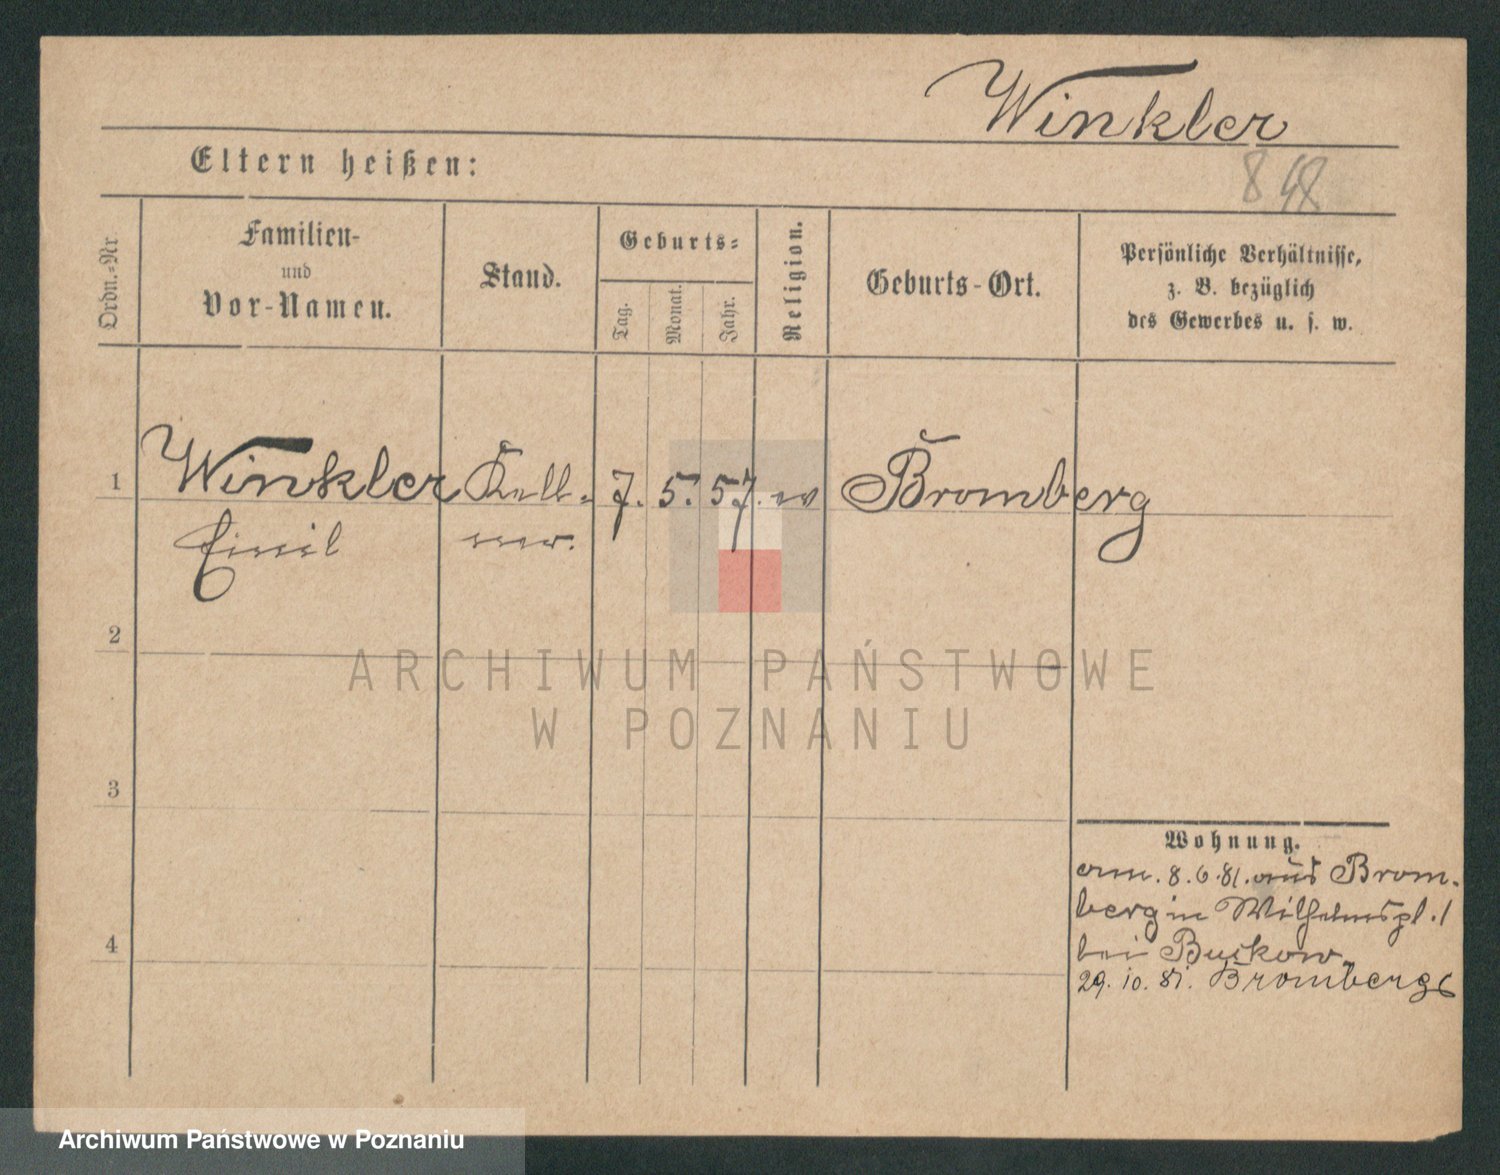 Winkler
Eltern heißen:
8 48
Ordn.=Nr
Familien-
und
Vor-Namen.
Stand.
Geburts=
Tag.
Monat.
Jahr.
Religion.
Geburts-Ort.
Persönliche Verhältnisse,
z. B. bezüglich
des Gewerbes u. s. w.
1 Winkler Kell= 7. 5. 57. ev Bromberg
Emil ner.
2
ARCHIWUM PAŃSTWOWE
W POZNANIU
3
Wohnung.
am. 8.6.81. aus Brom.
berg in Wilhelmspl. 1
4
bei Buckow
29. 10. 81. Bromberg
Archiwum Państwowe w Poznaniu